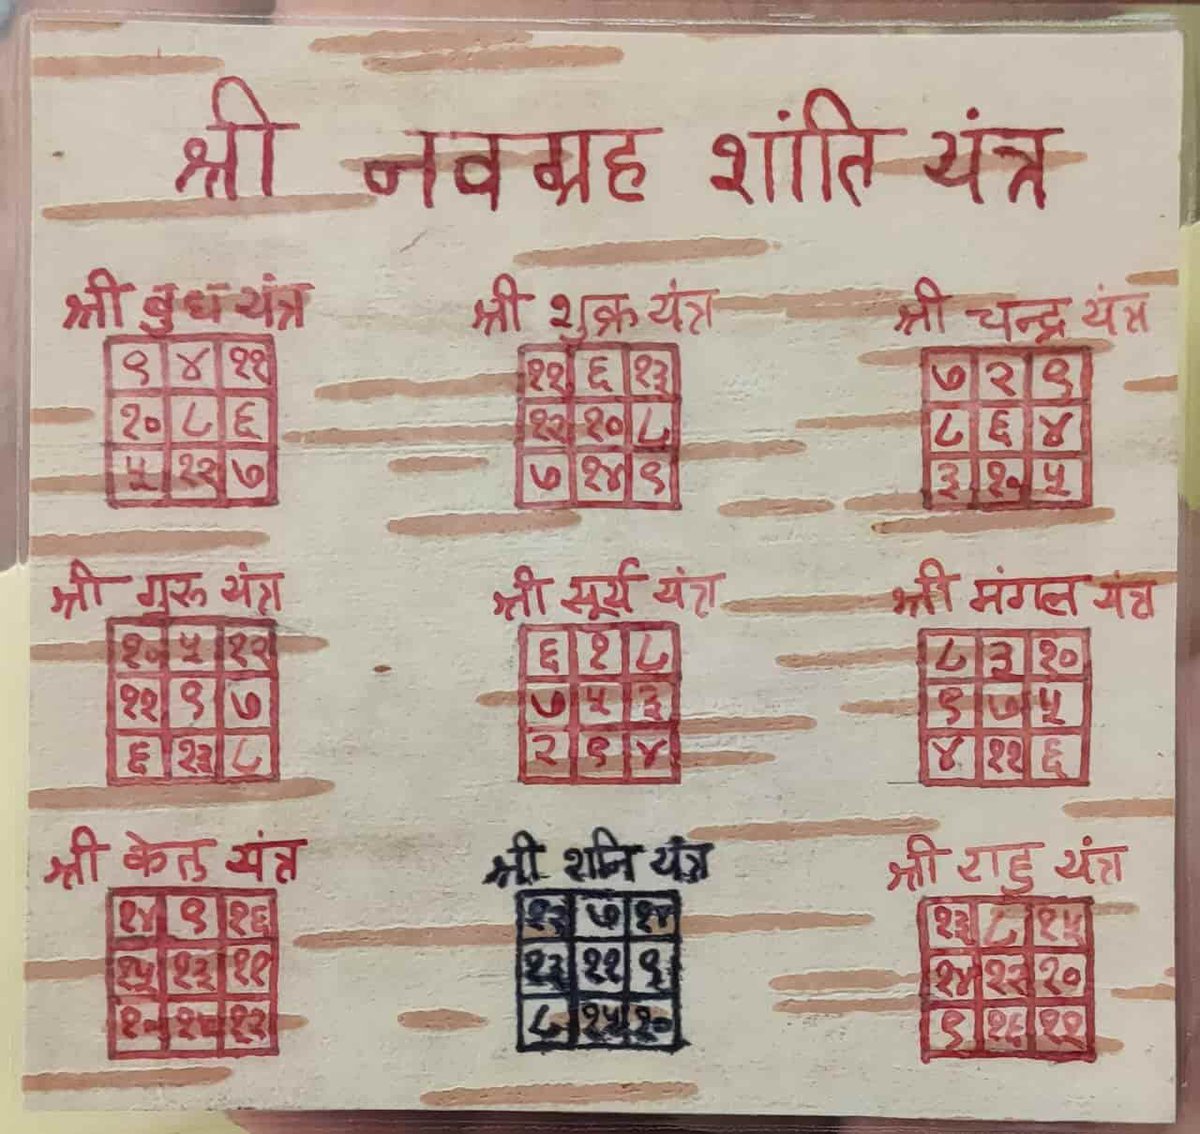 श्री नवग्रह शांति यंत्र
श्री बुध यंत्र
९ ४ ११
१० ८ ६
५ १२ ७
श्री शुक्र यंत्र
११ ६ १३
१२ १० ८
७ १४ ९
श्री चन्द्र यंत्र
७ २ ९
८ ६ ४
३ १० ५
श्री गुरु यंत्र
१० ५ १२
११ ९ ७
६ १३ ८
श्री सूर्य यंत्र
६ १ ८
७ ५ ३
२ ९ ४
श्री मंगल यंत्र
८ ३ १०
९ ७ ५
४ ११ ६
श्री केतु यंत्र
१४ ९ १६
१५ १३ ११
१० १२
श्री शनि यंत्र
७ १४
१३ ११ ९
८ १५ १०
श्री राहु यंत्र
१३ ८ १५
१४ १२ १०
९ १६ ११